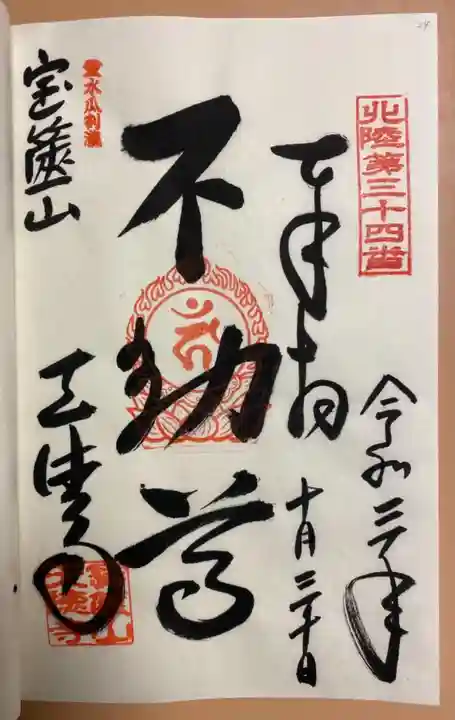 北陸第三十四番
令和三年
奉拝
十月三十日
不動尊
霊水瓜割瀧
宝篋山
天徳寺